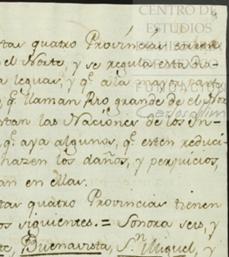 CENTRO DE
ESTUDIOS
tas quatro Provincias
el Norte, y se regula esta
leguas, y q.e a la mayor parte
q.e llaman Rio grande de el Nor
stan las Naciones de los In
q.e aya algunos, q.e esten reduci
hazen los daños, y perjuicios,
an en ellas.
tas quatro Provincias tienen
os siguientes. = Sonora seis, y
te, Buenavista, S.n Miguel, y